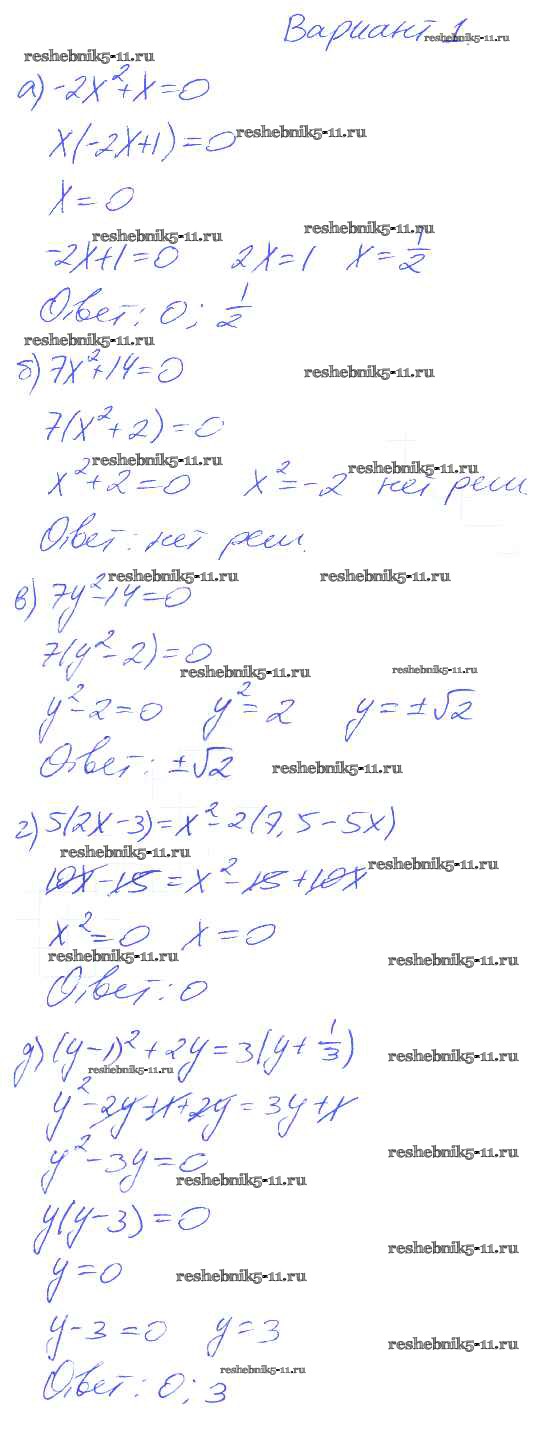 Вариант 1
reshebnik5-11.ru
reshebnik5-11.ru
а) -2x²+x=0
x(-2x+1)=0 reshebnik5-11.ru
x=0
reshebnik5-11.ru reshebnik5-11.ru
-2x+1=0 2x=1 x=1/2
Ответ: 0; 1/2
reshebnik5-11.ru
б) 7x²+14=0 reshebnik5-11.ru
7(x²+2)=0
reshebnik5-11.ru reshebnik5-11.ru
x²+2=0 x²=-2 нет реш.
Ответ: нет реш.
reshebnik5-11.ru reshebnik5-11.ru
в) 7y²-14=0
7(y²-2)=0
reshebnik5-11.ru reshebnik5-11.ru
y²-2=0 y²=2 y=±√2
Ответ: ±√2 reshebnik5-11.ru
г) 5(2x-3)=x²-2(7,5-5x)
reshebnik5-11.ru reshebnik5-11.ru
10x-15=x²-15+10x
x²=0 x=0
reshebnik5-11.ru reshebnik5-11.ru
Ответ: 0
д) (y-1)²+2y=3(y+1/3) reshebnik5-11.ru
reshebnik5-11.ru
y²-2y+1+2y=3y+1
y²-3y=0 reshebnik5-11.ru
reshebnik5-11.ru
y(y-3)=0
reshebnik5-11.ru
y=0 reshebnik5-11.ru
y-3=0 y=3 reshebnik5-11.ru
reshebnik5-11.ru
Ответ: 0; 3